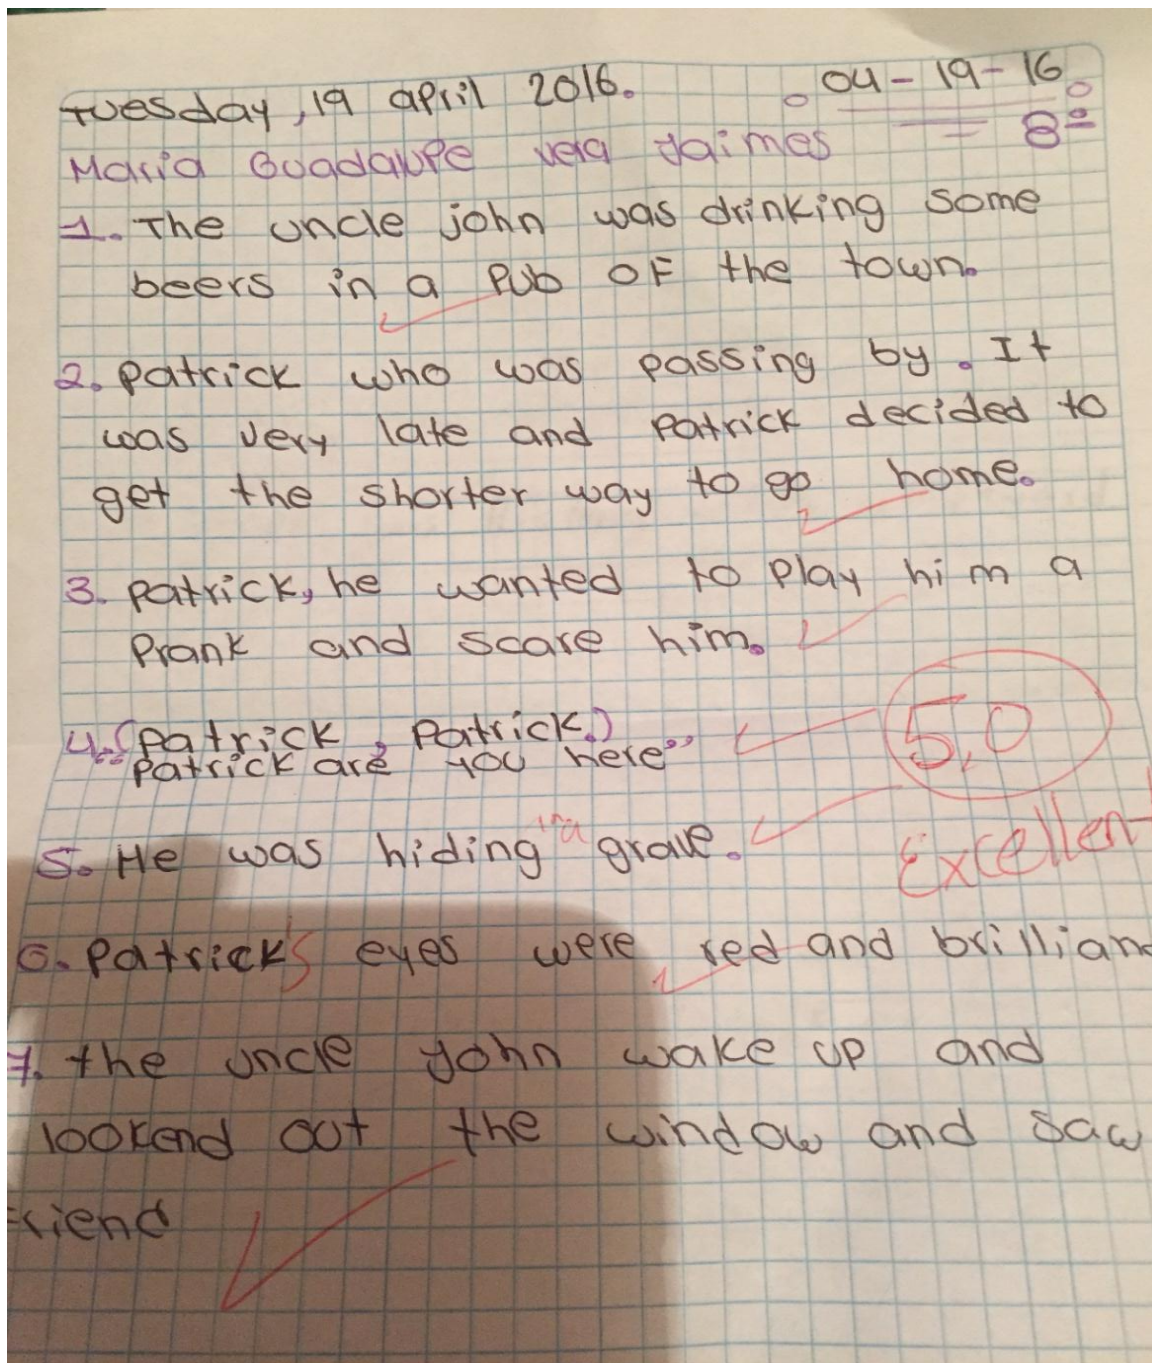 Tuesday, 19 april 2016. 04-19-16
Maria Guadalupe vera Jaimes 8º
1. The uncle john was drinking some
beers in a Pub OF the town.
2. Patrick who was passing by. It
was very late and Patrick decided to
get the shorter way to go home.
3. Patrick, he wanted to play him a
Prank and scare him.
4. (Patrick, Patrick.)
Patrick are you here"
5,0
5. He was hiding in a grave.
Excellent
6. Patrick's eyes were red and brillian
7. the uncle John wake up and
lookend out the window and saw
Friend